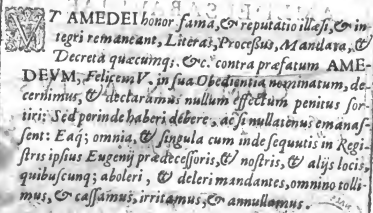 VT AMEDEI honor fama, & reputatio illæsi, & in-
tegri remaneant, Literas, Processus, Mandata, &
Decreta quæcumq; &c. contra præfatum AME-
DEVM, Felicem V. in sua Obedientia nominatum, de-
cernimus, & declaramus nullum effectum penitus sor-
tiri; Sed perinde haberi debere, ac si nullatenus emanas-
sent: Eaq; omnia, & singula cum inde sequutis in Regi-
stris ipsius Eugenij prædecessoris, & nostris, & alijs locis,
quibuscunq; aboleri, & deleri mandantes, omnino tolli-
mus, & cassamus, irritamus, & annullamus.